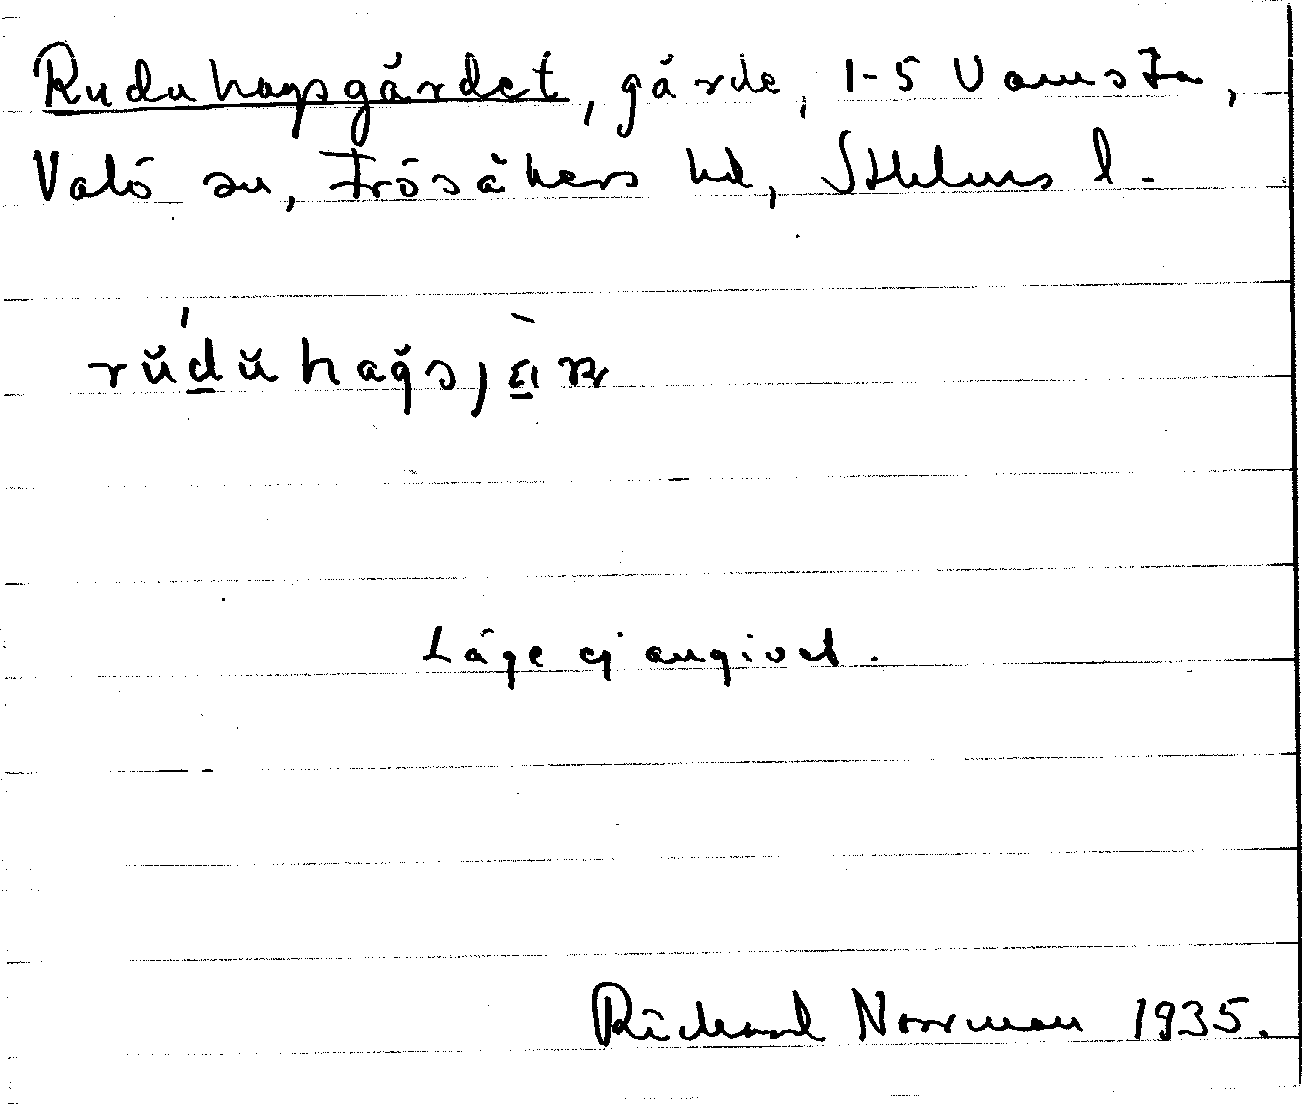 Ruduhagsgärdet, gärde, 1-5 Vamsta,
Valö sn, Frösåkers hd, Sthlms l.
rŭduhags
Läge ej angivet.
Richard Norrman 1935.